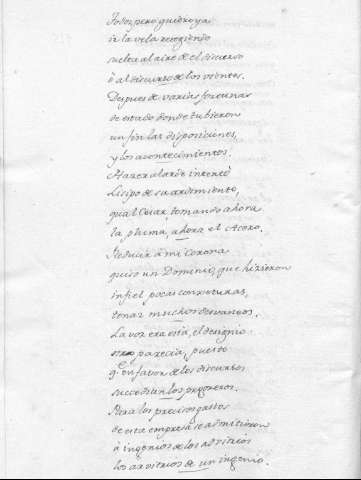 Todos, pero quiero ya
ir la vela recogiendo
suelta al aire de el discurso
ò al discurso de los vientos.
Despues de varias fortunas
de estado donde tubieron
un fin las disposiciones,
y los acontecimientos.
Hazer alarde intentò
Lisipo de su ardimiento,
qual Cesar, tomando ahora
la pluma, ahora el Acero.
Reducir à mi Corona
quiso un Dominio, que hizieron
infiel pocas conjeturas,
tomar muchos desvaneos.
La voz era esta, el designio
otro parecia, puesto
q.e en favor de los discursos
succedian los progresos.
Para los precisos gastos
de esta empresa se admitieron
à ingenios de los advitrios
los arvitrios de un ingenio.